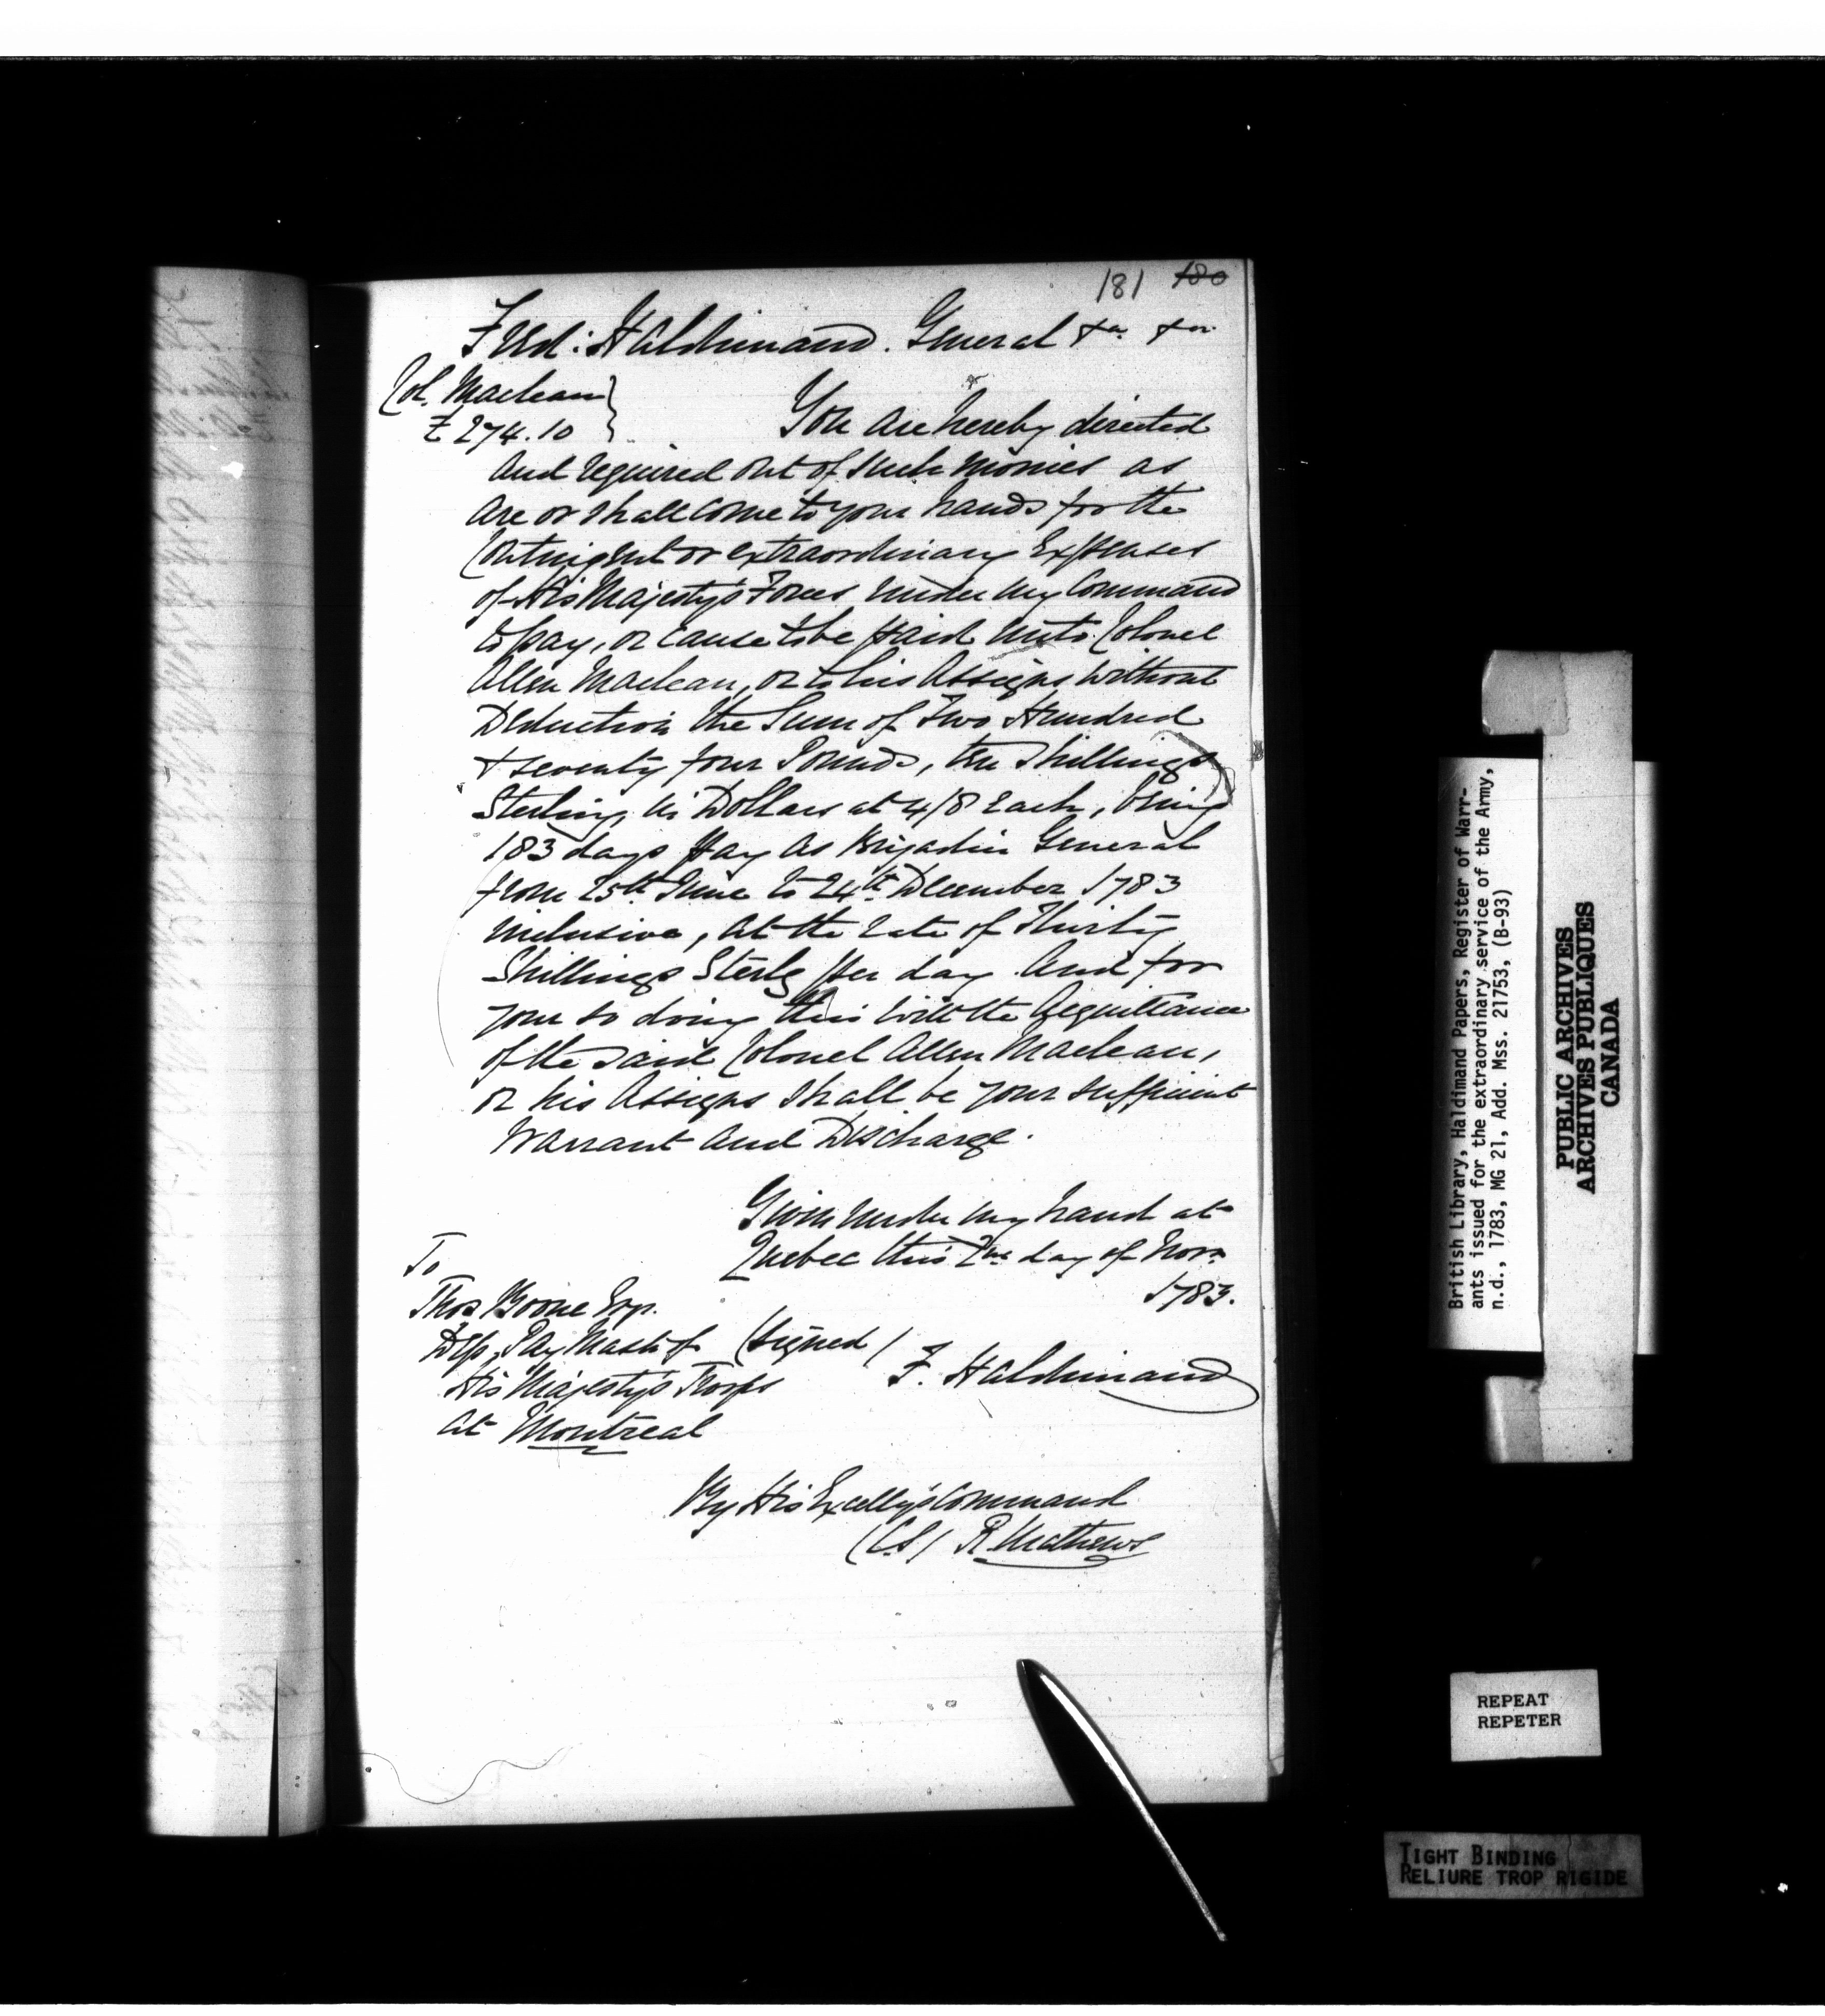 181 180
Fred: Haldimand. General &a &a
Col. Maclean
£ 274.10
You are hereby directed
and required out of such monies as
are or shall come to your hands for the
Contingent or extraordinary Expenses
of His Majesty's Forces under my Command
to pay, or cause to be paid unto Colonel
Allen Maclean, or to his Assigns without
Deduction the Sum of Two Hundred
& seventy four Pounds, ten Shillings
Sterling in Dollars at 4/8 Each, being
183 days Pay as Brigadier General
from 25th June to 24th December 1783
inclusive, at the rate of Thirty
Shillings Sterlg per day. And for
your so doing this with the Acquittance
of the said Colonel Allen Maclean,
or his Assigns shall be your sufficient
Warrant and Discharge.
Given under my hand at
Quebec this 2nd day of Novr
1783.
To
Thos Boone Esqr.
Dep. Pay Mastr of
His Majesty's Troops
at Montreal
(signed) F. Haldimand
By His Excelly's Command
(C.S) R. Mathews
British Library, Haldimand Papers, Register of Warr-
ants issued for the extraordinary service of the Army,
n.d., 1783, MG 21, Add. Mss. 21753, (B-93)
PUBLIC ARCHIVES
ARCHIVES PUBLIQUES
CANADA
REPEAT
REPETER
TIGHT BINDING
RELIURE TROP RIGIDE